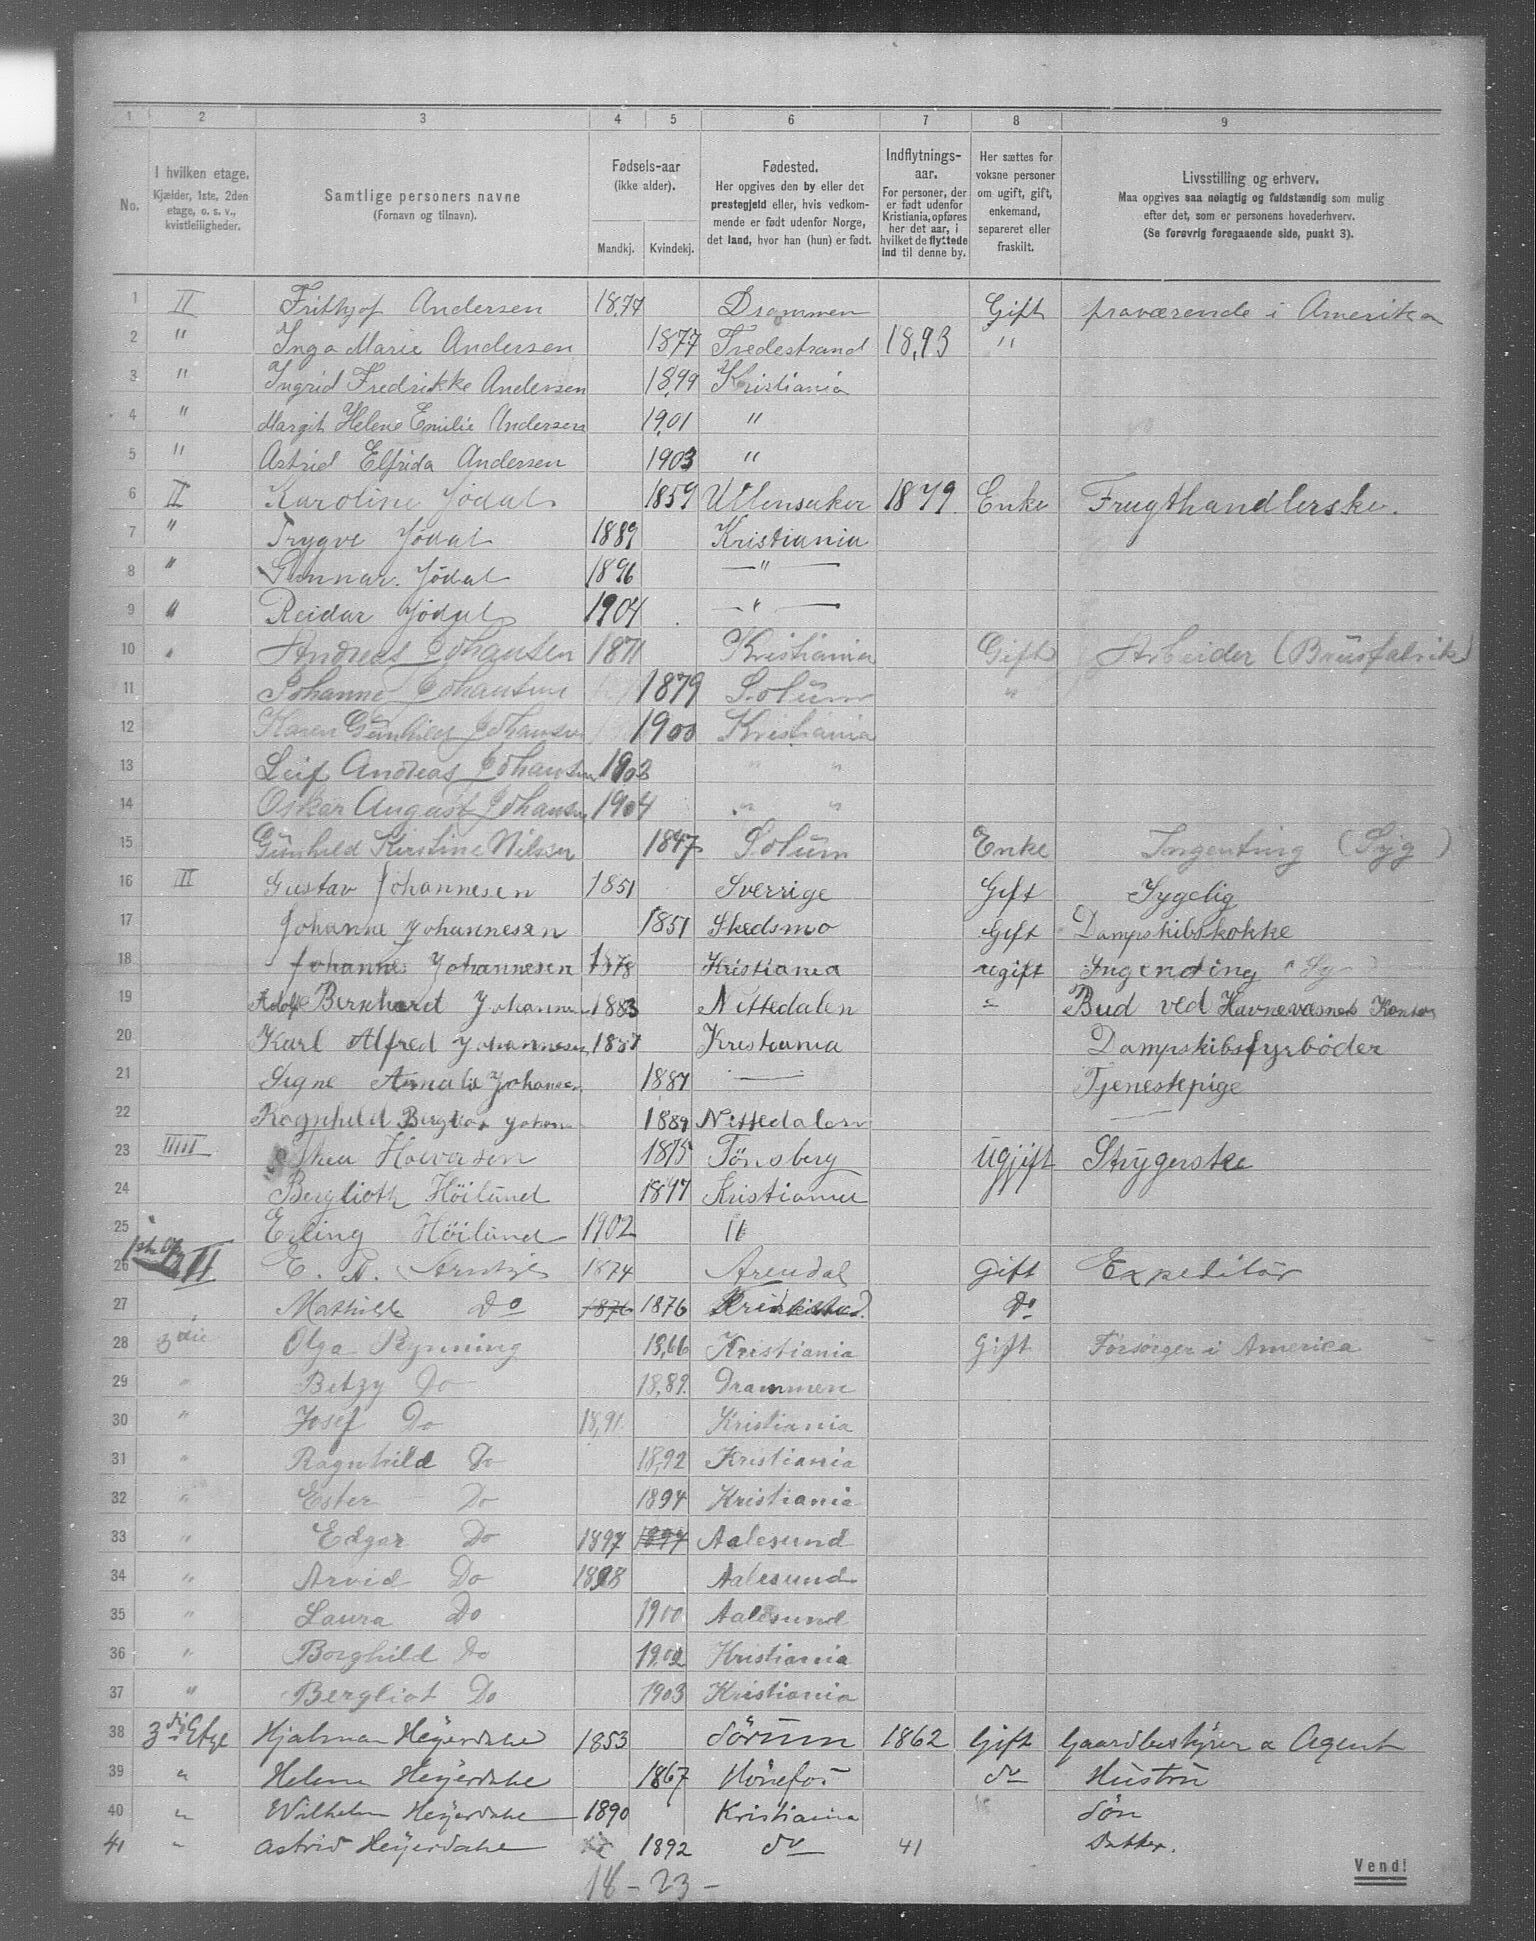 1 2 3 4 5 6 7 8 9
No.
I hvilken etage.
Kjælder, 1ste, 2den
etage, o. s. v.,
kvistleiligheder.
Samtlige personers navne
(Fornavn og tilnavn).
Fødsels-aar
(ikke alder).
Mandkj. Kvindekj.
Fødested.
Her opgives den by eller det
prestegjeld eller, hvis vedkom-
mende er født udenfor Norge,
det land, hvor han (hun) er født.
Indflytnings-
aar.
For personer, der
er født udenfor
Kristiania, opføres
her det aar, i
hvilket de flyttede
ind til denne by.
Her sættes for
voksne personer
om ugift, gift,
enkemand,
separeret eller
fraskilt.
Livsstilling og erhverv.
Maa opgives saa nøiagtig og fuldstændig som mulig
efter det, som er personens hovederhverv.
(Se forøvrig foregaaende side, punkt 3).
1 II Frithjof Andersen 1877 Drammen Gift fraværende i Amerika
2 " Inga Marie Andersen 1877 Tredestrand 1893 "
3 " Ingrid Fredrikke Andersen 1899 Kristiania
4 " Margit Helene Emilie Andersen 1901 "
5 " Astrid Elfrida Andersen 1903 "
6 II Karoline Jödal 1859 Ullensaker 1879. Enke Frugthandlerske.
7 " Trygve Jödal 1889 Kristiania
8 " Gunnar. Jödal 1896 — " —
9 " Reidar Jödal 1904 — " —
10 " Andreas Johansen 1871 Kristiania Gift Arbeider (Brusfabrik)
11 Johanne Johansen 1879 Solum "
12 Karen Gunhild Johansen 1900 Kristiania
13 Leif Andreas Johansen 1903 " "
14 Oskar August Johansen 1904 " "
15 Gunhild Kirstine Nilsen 1847 Solum Enke Ingenting (Syg)
16 II Gustav Johannesen 1851 Sverrige Gift Sygelig
17 Johanne Johannesen 1851 Skedsmo Gift Dampskibskokke
18 Johannes Johannesen 1878 Kristiania ugift Ingending "Sy
19 Adolf Bernhard Johannes 1883 Nittedalen " Bud ved Havnevæsnets Kontor
20 Karl Alfred Johannesen 1887 Kristiania Dampskibsfyrböder
21 Signe Amalie Johansen 1887 — Tjenestepige
22 Ragnhild Bergliot Johan 1889 Nittedalen —
23 IIIII Thea Halvorsen 1875 Tönsberg Ugjift Strygerske
24 Berglioth Höilund 1897 Kristiania
25 Erling Höilund 1902 "
26 II E. A. Arntzen 1874 Arendal Gift Expeditör
27 " Mathilde Do 1876 1876 Do
28 3die Olga Rynning 1866 Kristiania Gift Försörger i America
29 " Betzy Do 1889. Drammen
30 " Josef Do 1891. Kristiania
31 " Ragnhild Do 1892 Kristiania
32 " Ester Do 1894 Kristiania
33 " Edgar Do 1897 1897 Aalesund
34 " Arvid Do 1898 Aalesund
35 " Laura Do 1900 Aalesund
36 " Borghild Do 1902 Kristiania
37 " Bergliot Do 1903 Kristiania
38 3die Etge Hjalmar Heyerdahl 1853 Sörum 1862 Gift Gaardbestyrer & Agent
39 " Helene Heyerdahl 1867 Hönefos do Hustru
40 " Wilhelm Heyerdahl 1890 Kristiania Sön
41 " Astrid Heyerdahl 1892 do 41 Datter.
18 - 23 -
Vend!